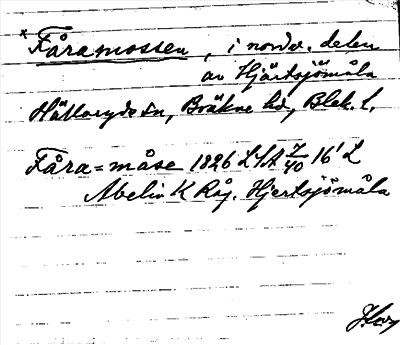 *Fåramossen, i nordv. delen
av Hjärtsjömåla
Hällaryds sn, Bräkne hd, Blek. l.
Fåra=måse 1826 LSA 7/40 16' L
Abelin K Råg. Hjertsjömåla